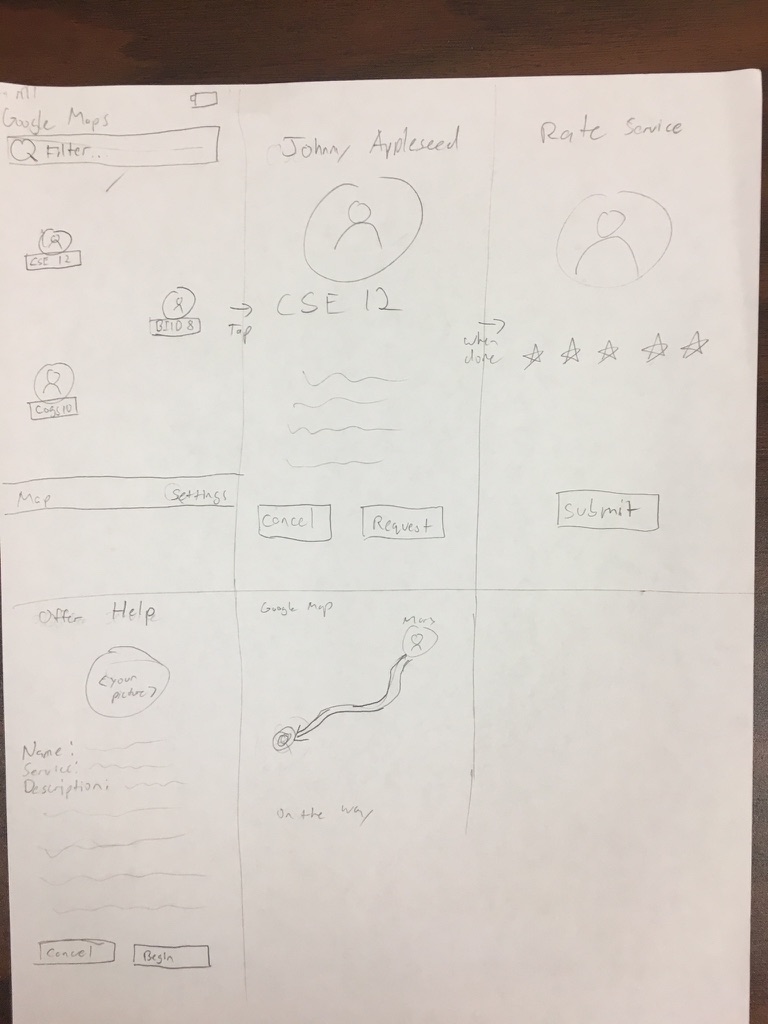 Google Maps
Filter...
CSE 12
BILD 8
Cogs 10
Map Settings
Tap
Johnny Appleseed
CSE 12
Cancel Request
when
done
Rate Service
Submit
Offer Help
<your
picture>
Name:
Service:
Description:
Cancel Begin
Google Map
On the way